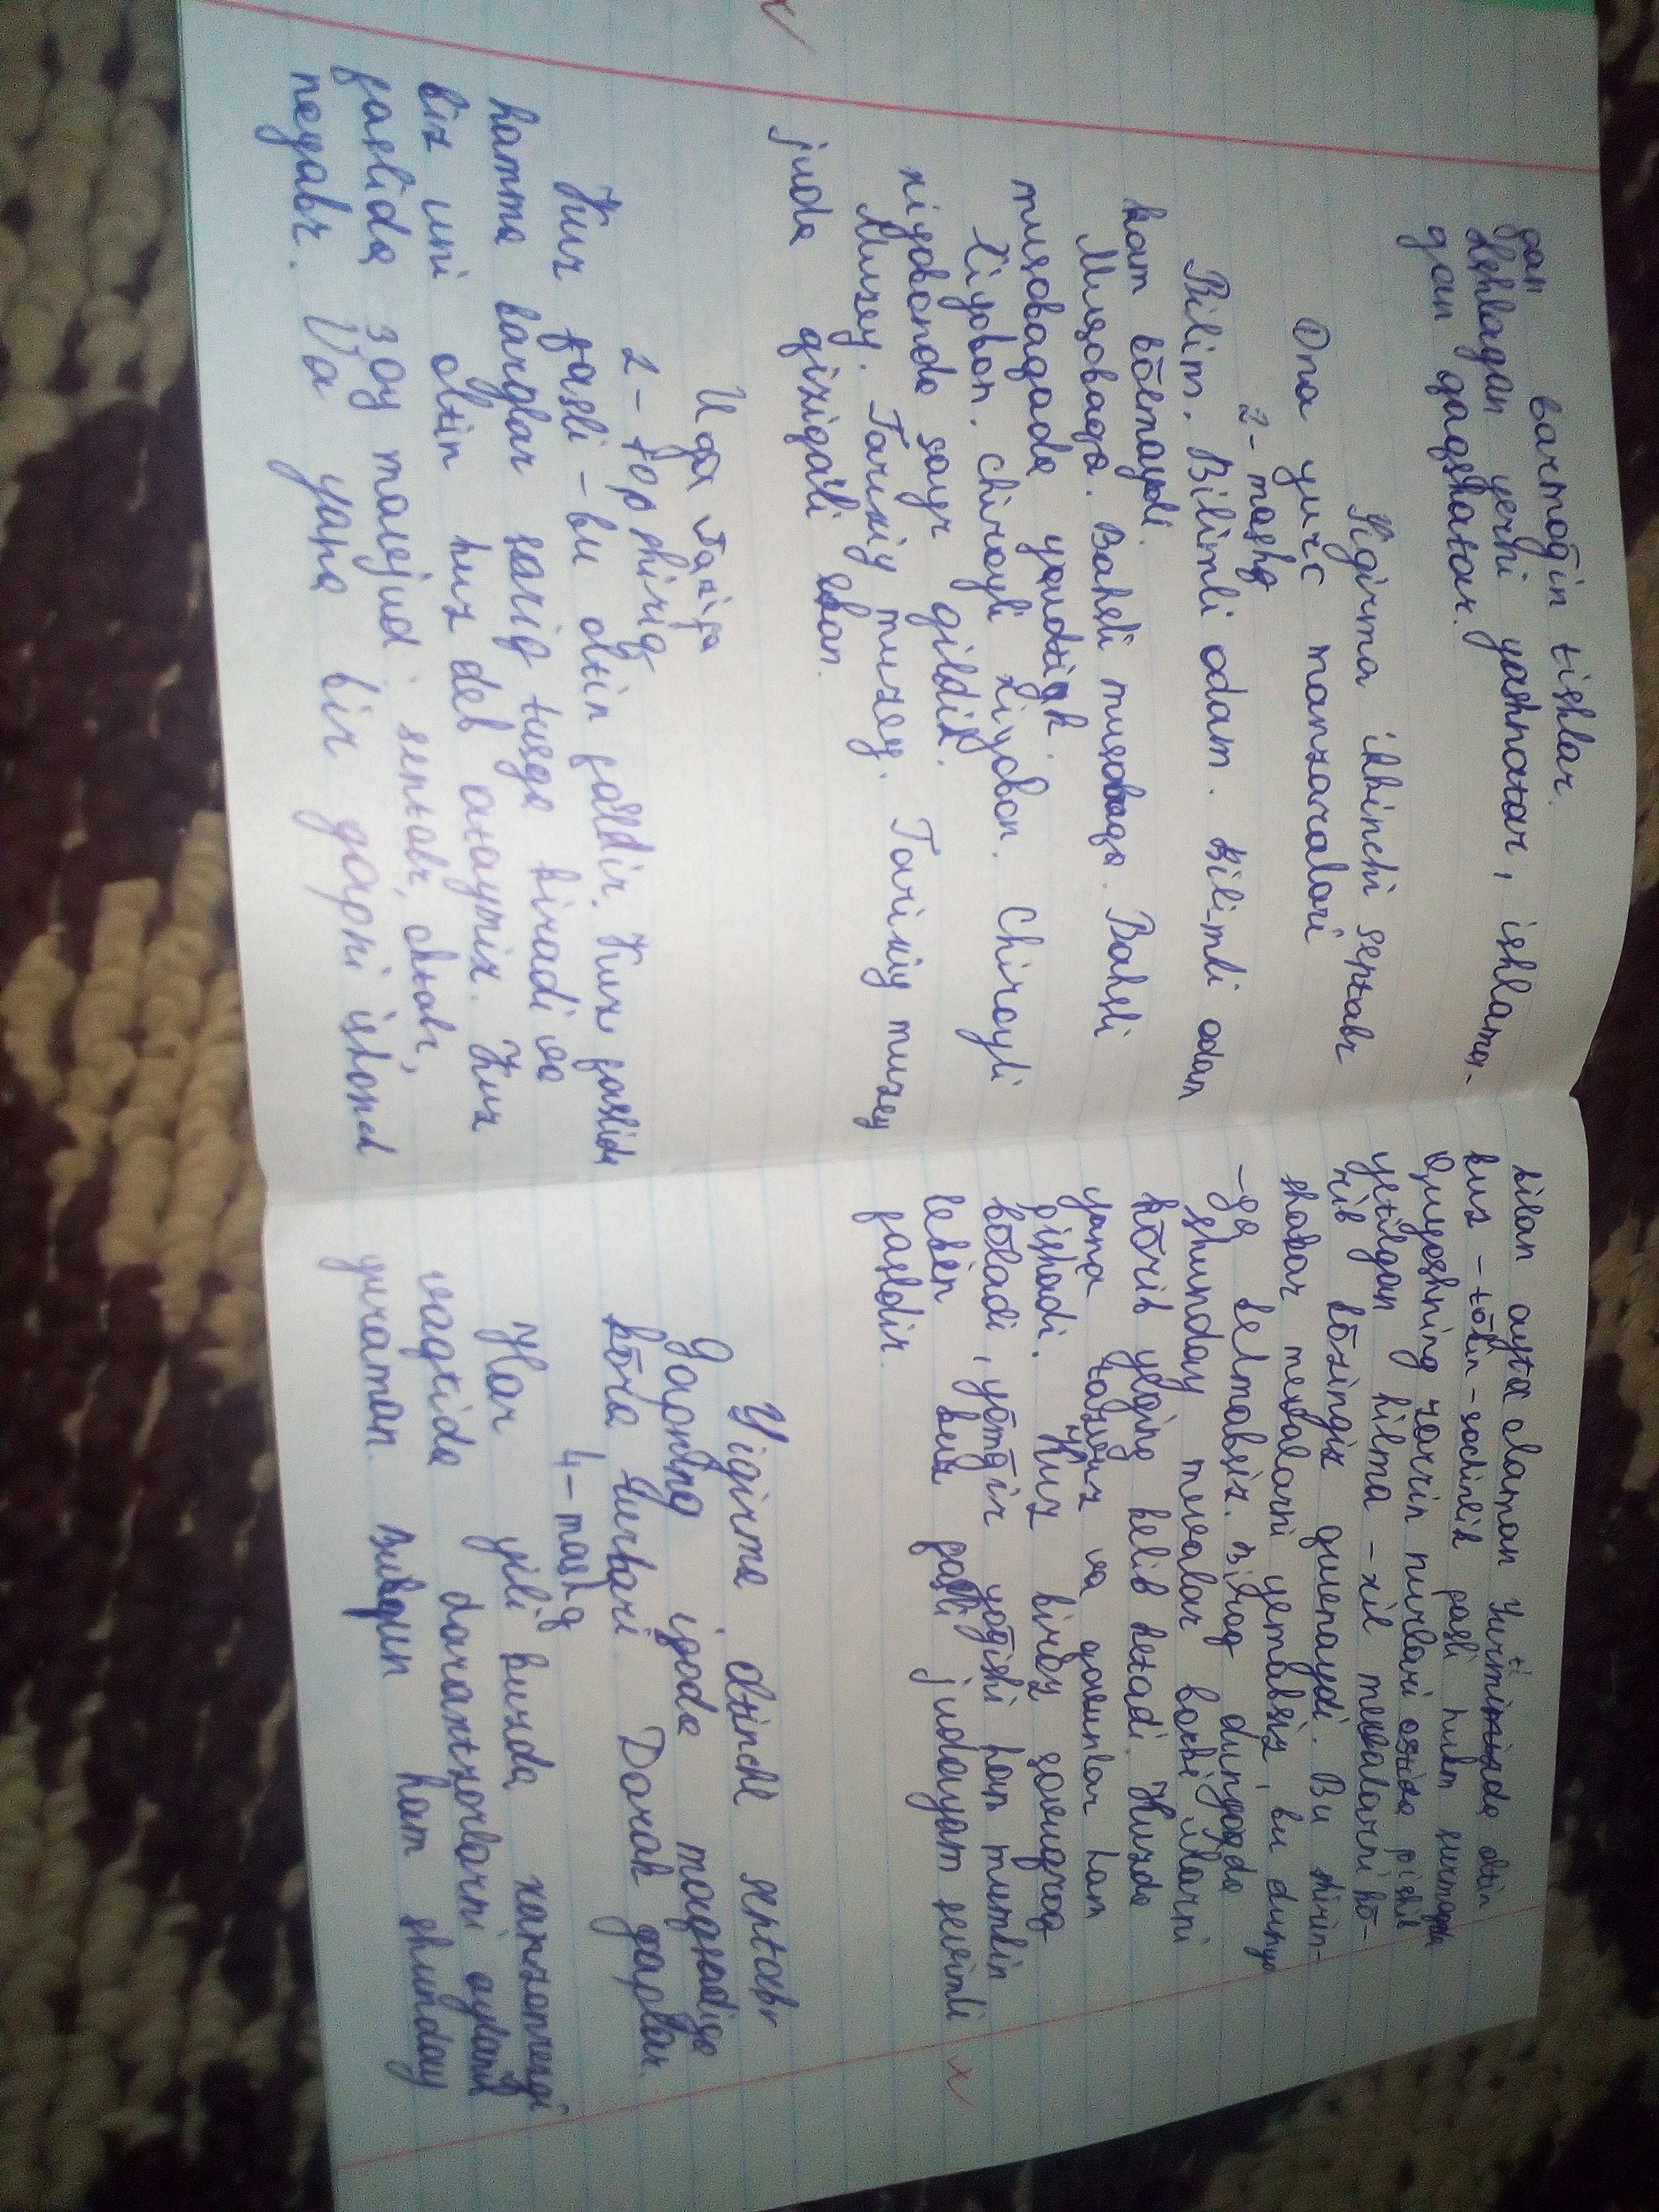 barmoğin tishlar.
gan
Ishlagan yerni yashnatar, ishlama-
gan qaqshatar.
Yigirma ikkinchi sentabr
Ona yurt manzaralari
2-mashq
Bilim. Bilimli odam. Bilimli odam
kam bōlmaydi.
Musobaqa. Bahsli musobaqa. Bahsli
musobaqada youdtiqk.
Xiyobon. Chiroyli xiyobon. Chiroyli
xiyobonda sayr qildik.
Muzey. Tarixiy muzey. Tarixiy muzey
juda qiziqarli ekan.
Uyga vazifa
2-topshiriq
Kuz fasli - bu oltin fasldir. Kuz faslida
hamma barglar sariq tusga kiradi va
biz uni oltin kuz deb ataymiz. Kuz
faslida 3 oy mavjud: sentabr, oktabr,
noyabr. Va yana bir gapni ishonch
bilan ayta olaman Yurtimizda oltin
kuz - tōkin-sochinlik fasli hukm surmoqda
Quyoshning zarrin nurlari ostida pishib
yetilgan hilma-xil mevalarni kō-
rib kōzingiz quvnaydi. Bu shirin-
shakar mevalarni yemabsiz, bu dunyo
-ga kelmabsiz. Biroq dunyoda
shunday mevalar borki ularni
kōrib yeging kelib ketadi. Kuzda
yana tarvuz va qovunlar ham
pishadi. Kuz biroz sovuqroq
bōladi, yomğir yoğishi ham mumkin
lekin kuz fasli judayam sevimli
fasldir.
Yigirma oltinchi sentabr
Gapning ifoda maqsadiga
kōra turlari. Darak gaplar.
4-mashq
Har yili kuzda xazonrezgi
vaqtida daraxtzorlarni aylanib
yuraman. Bugun ham shunday